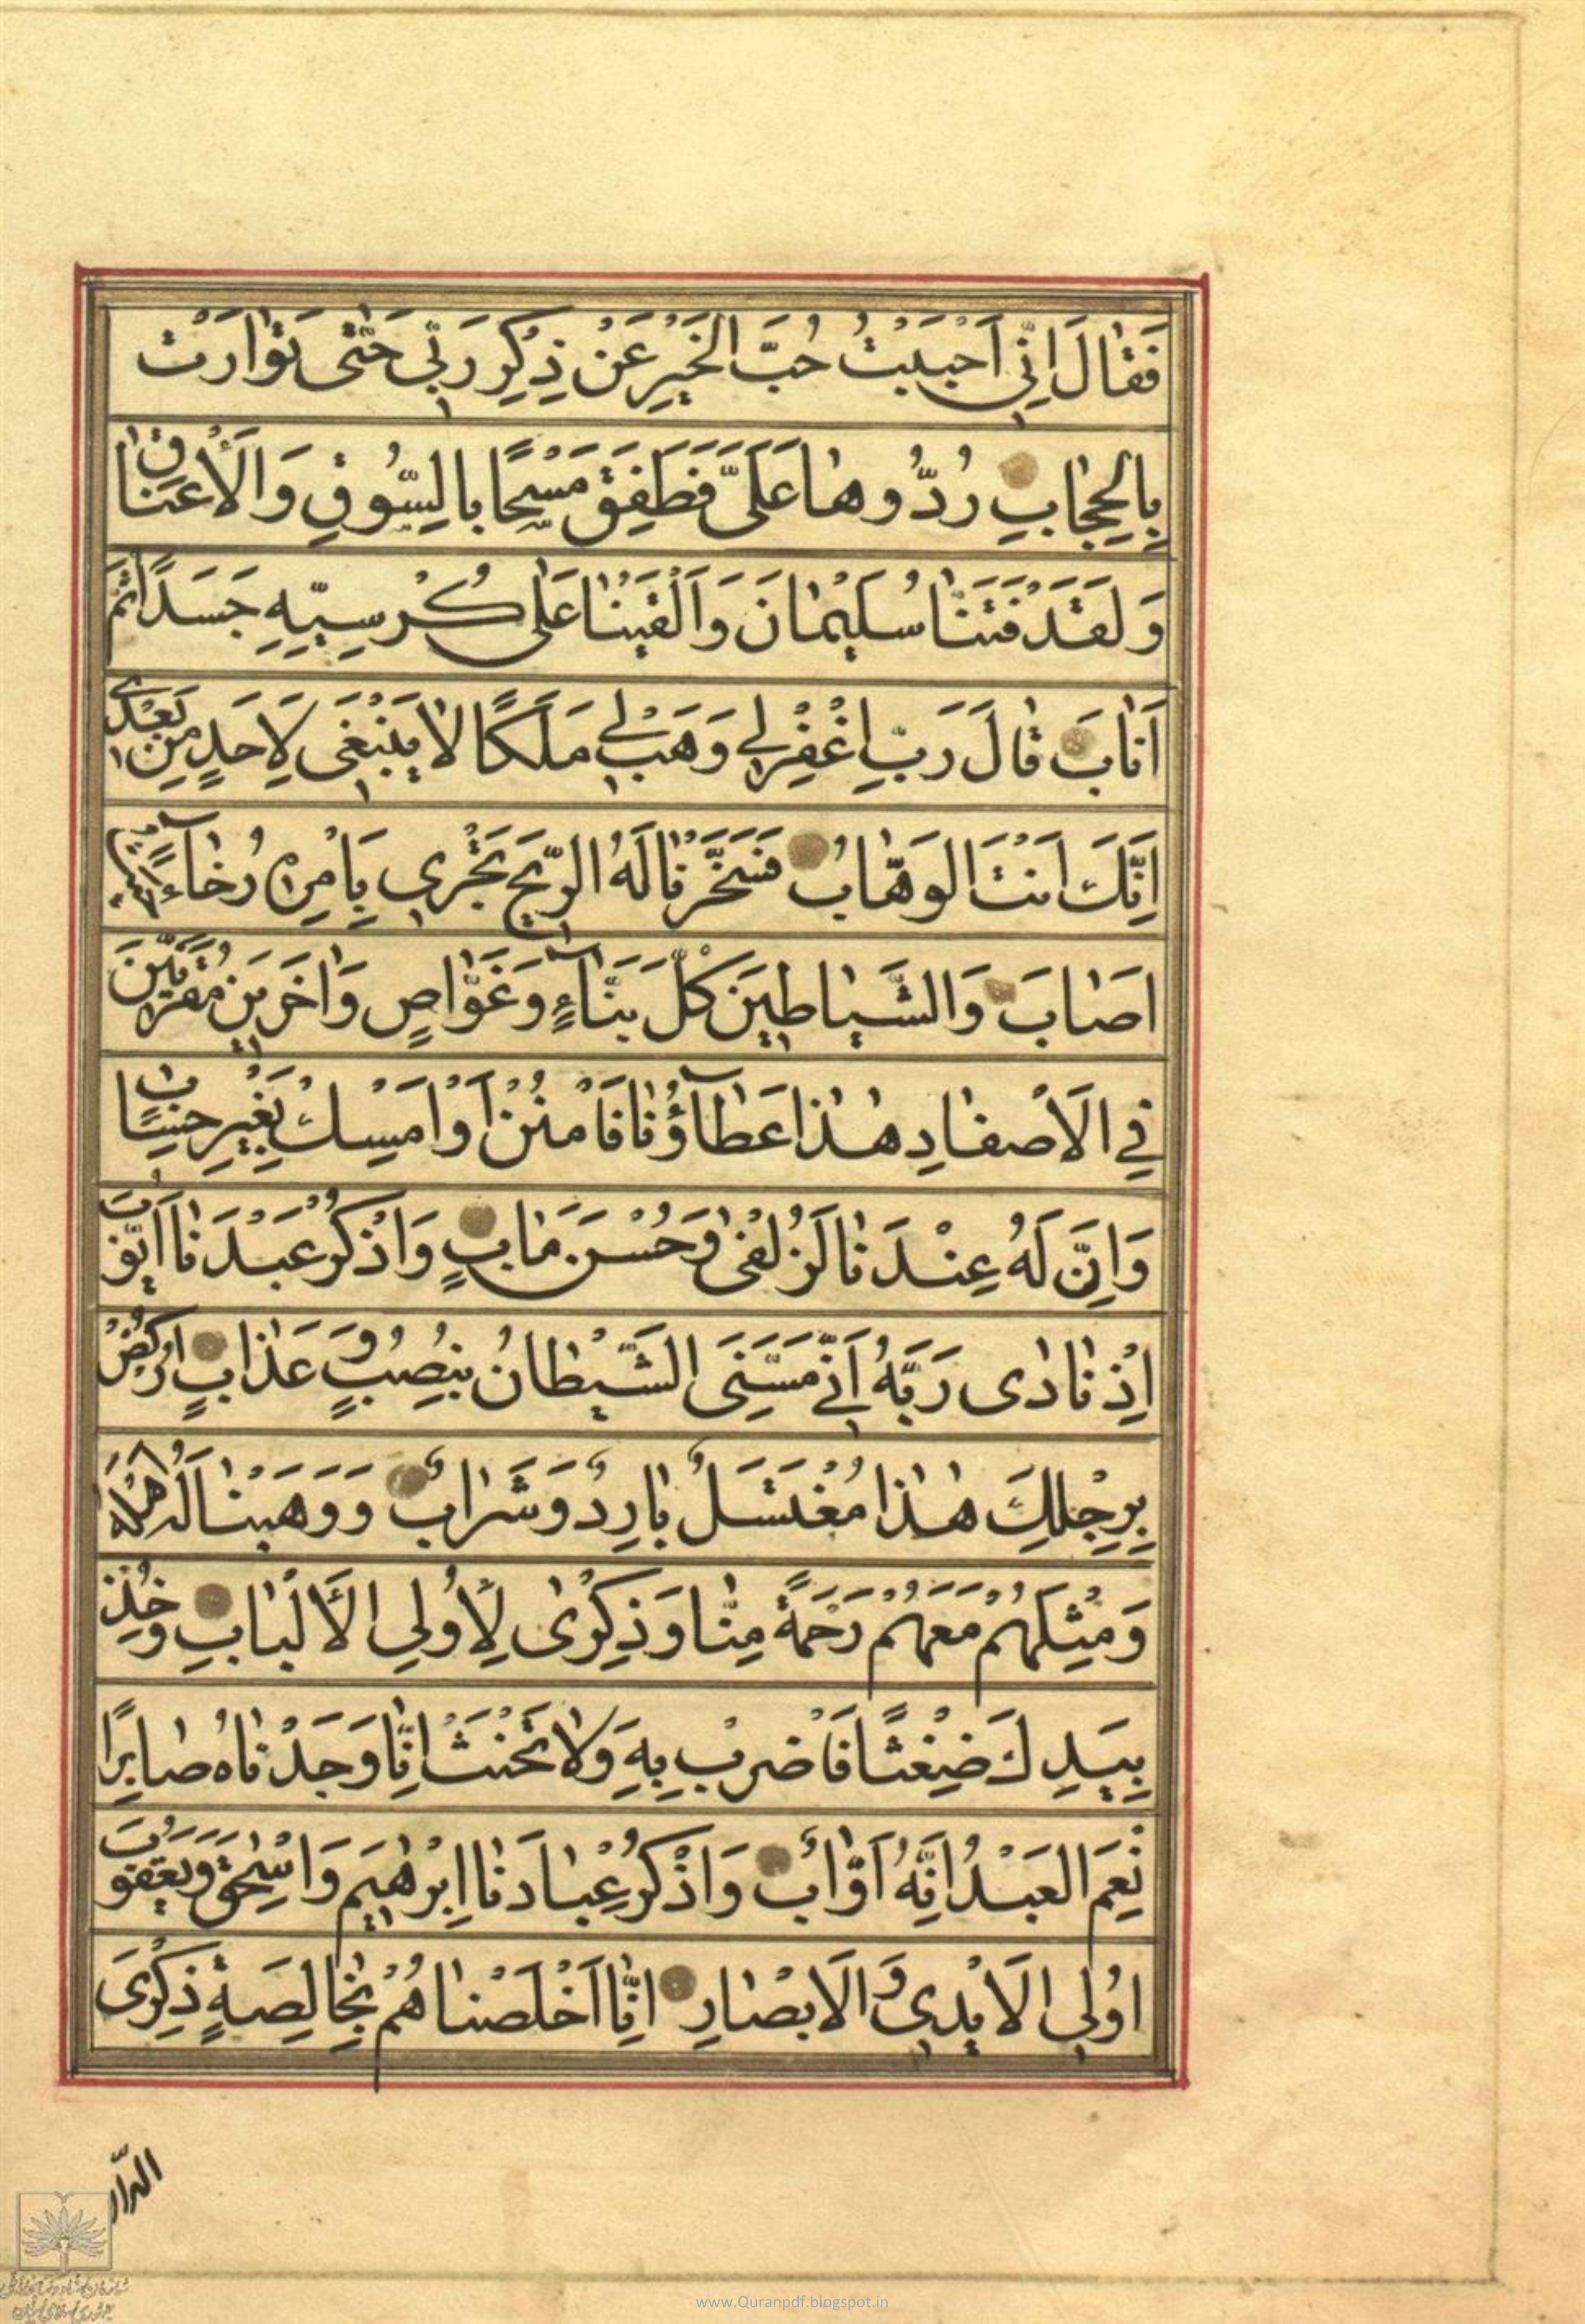 فَقَالَ اِنِّي اَحْبَبْتُ حُبَّ الْخَيْرِ عَنْ ذِكْرِ رَبِّي حَتّٰى تَوٰارَتْ
بِالْحِجٰابِ رُدُّوهٰا عَلَىَّ فَطَفِقَ مَسْحًا بِالسُّوقِ وَالْاَعْنٰاقِ
وَلَقَدْ فَتَنّٰا سُلَيْمٰانَ وَاَلْقَيْنٰا عَلٰى كُرْسِيِّهِ جَسَدًا ثُمَّ
اَنٰابَ قٰالَ رَبِّ اغْفِرْ لِي وَهَبْ لِي مُلْكًا لٰا يَنْبَغِي لِاَحَدٍ مِنْ بَعْدِي
اِنَّكَ اَنْتَ الْوَهّٰابُ فَسَخَّرْنٰا لَهُ الرِّيحَ تَجْرِي بِاَمْرِهِ رُخٰآءً حَيْثُ
اَصٰابَ وَالشَّيٰاطِينَ كُلَّ بَنّٰآءٍ وَغَوّٰاصٍ وَاٰخَرِينَ مُقَرَّنِينَ
فِي الْاَصْفٰادِ هٰذٰا عَطٰآؤُنٰا فَامْنُنْ اَوْ اَمْسِكْ بِغَيْرِ حِسٰابٍ
وَاِنَّ لَهُ عِنْدَنٰا لَزُلْفٰى وَحُسْنَ مَاٰبٍ وَاذْكُرْ عَبْدَنٰا اَيُّوبَ
اِذْ نٰادٰى رَبَّهُ اَنِّي مَسَّنِيَ الشَّيْطٰانُ بِنُصْبٍ وَعَذٰابٍ اُرْكُضْ
بِرِجْلِكَ هٰذٰا مُغْتَسَلٌ بٰارِدٌ وَشَرٰابٌ وَوَهَبْنٰا لَهُ اَهْلَهُ
وَمِثْلَهُمْ مَعَهُمْ رَحْمَةً مِنّٰا وَذِكْرٰى لِاُولِي الْاَلْبٰابِ وَخُذْ
بِيَدِكَ ضِغْثًا فَاضْرِبْ بِهِ وَلٰا تَحْنَثْ اِنّٰا وَجَدْنٰاهُ صٰابِرًا
نِعْمَ الْعَبْدُ اِنَّهُ اَوّٰابٌ وَاذْكُرْ عِبٰادَنٰا اِبْرٰهِيمَ وَاِسْحٰقَ وَيَعْقُوبَ
اُولِي الْاَيْدِي وَالْاَبْصٰارِ اِنّٰا اَخْلَصْنٰاهُمْ بِخٰالِصَةٍ ذِكْرَى
الدّٰارِ
www.Quranpdf.blogspot.in